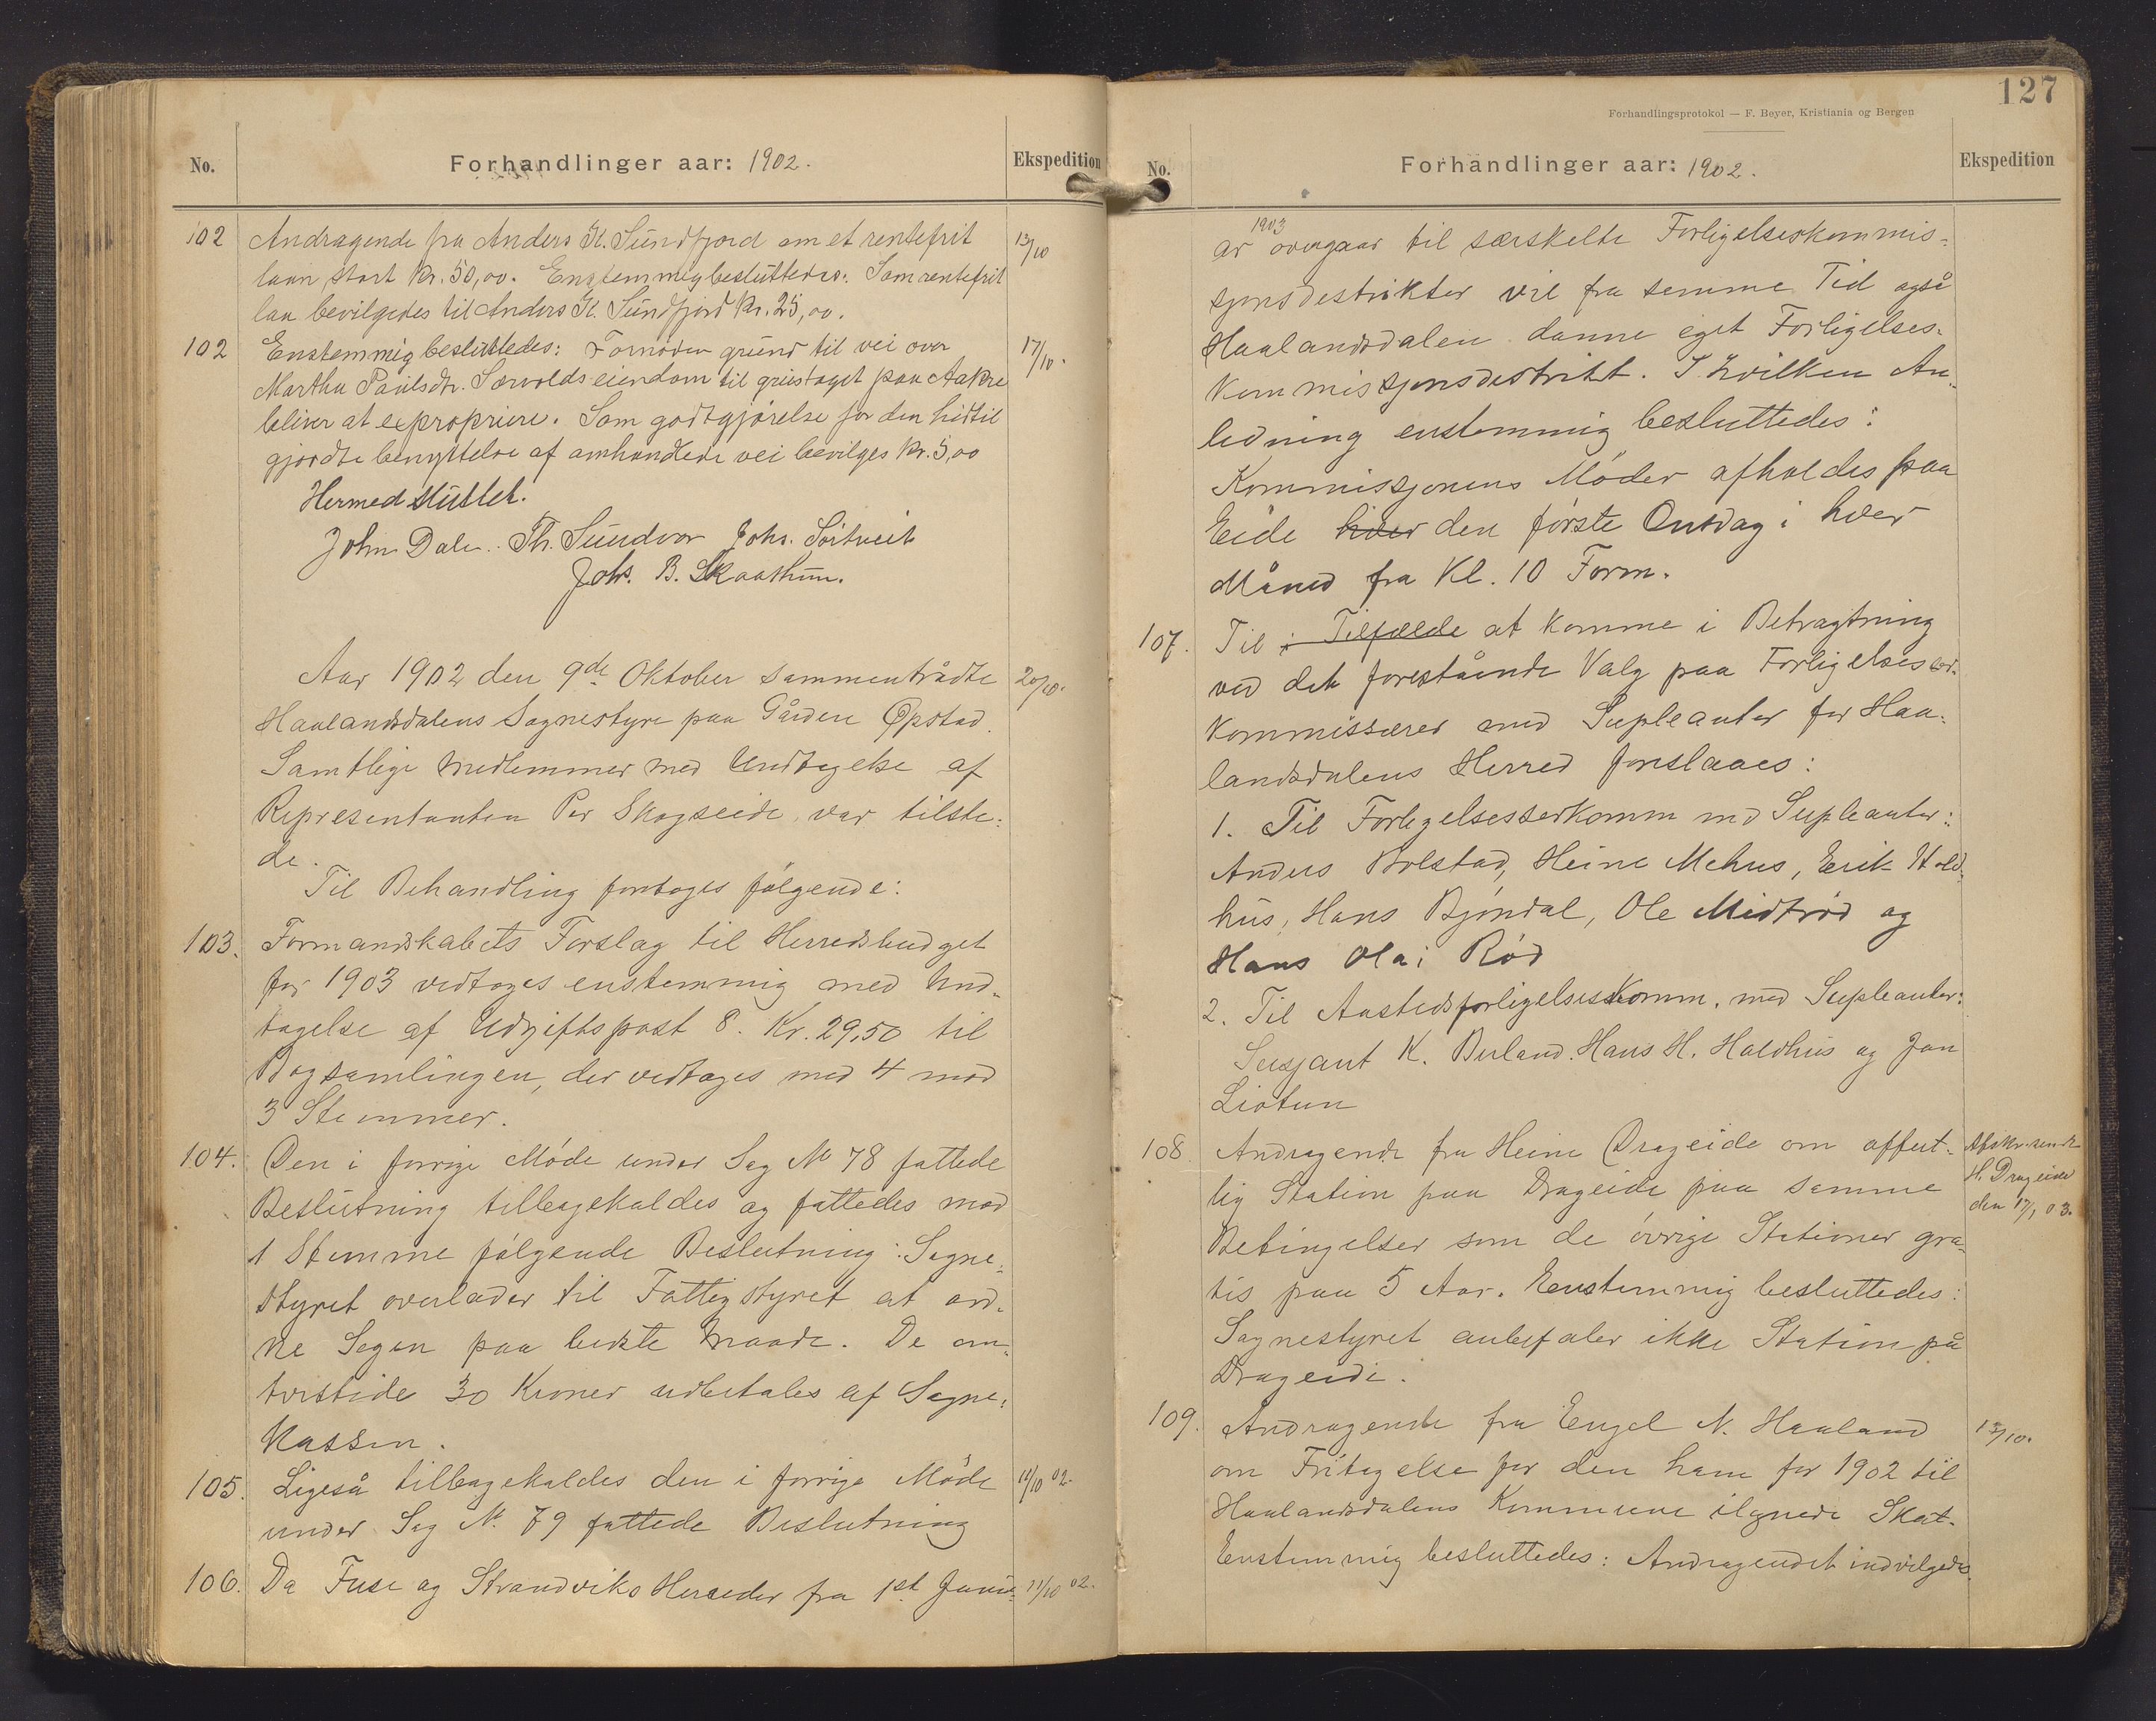 No.
Forhandlinger aar: 1902.
Ekspedition
102 Andragende fra Anders K. Sundfjord om et rentefrit 13/10
laan stort kr. 50,00. Enstemmig besluttedes: Som rentefrit
laan bevilgedes til Anders K. Sundfjord kr. 25,00.
102 Enstemmig besluttedes: Fornøden grund til vei over 17/10.
Martha Paulsdtr. Sørvolds eiendom til grustaget paa Aakre
bliver at expropriere. Som godtgjørelse for den hidtil
gjordte benyttelse af omhandlede vei bevilges kr. 5,00
Hermed sluttet.
John Dale. Th. Sundvor Johs. Sørtveit
Johs. B. Skaathun.
Aar 1902 den 9de Oktober sammentrådte 20/10.
Haalandsdalens Sognestyre paa Gården Øpstad.
Samtlige Medlemmer med Undtagelse af
Representanten Per Skogseide var tilste-
de.
Til Behandling foretoges følgende:
103. Formandskabets Forslag til Herredsbudget
for 1903 vedtoges enstemmig med Und-
tagelse af Udgiftspost 8. Kr. 29,50 til
Bogsamlingen, der vedtoges med 4 mod
3 Stemmer.
104. Den i forrige Møde under Sag № 78 fattede
Beslutning tilbagekaldes og fattedes mod
1 Stemme følgende Beslutning: Sogne-
styret overlader til Fattigstyret at ord-
ne Sagen paa bedste Maade. De om-
tvistede 30 Kroner udbetales af Sogne-
kassen.
105. Ligeså tilbagekaldes den i forrige Møde 11/10 02.
under Sag №. 79 fattede Beslutning
106. Da Fuse og Strandviks Herreder fra 1 st Janu- 11/10 02.
127
Forhandlingsprotokol — F. Beyer, Kristiania og Bergen
No.
Forhandlinger aar: 1902.
Ekspedition
1903
ar overgaar til særskelte Forligelseskommis-
sjonsdestrikter vil fra samme Tid også
Haalandsdalen danne eget Forligelses-
kommissjonsdestrikt. I hvilken An-
ledning enstemmig besluttedes:
Kommissjonens Møder afholdes paa
Eide hver den første Onsdag i hver
Måned fra Kl. 10 Form.
107. Til i Tilfælde at komme i Betragtning
ved det forestående Valg paa Forligelses
kommissærer med Supleanter for Haa-
landsdalens Herred foreslaaes:
1. Til Forligelsesserkomm md Supleanter:
Anders Bolstad, Heine Mehus, Erik Hold-
hus, Hans Bjøndal, Ole Midtrød og
Hans Olai Rød
2. Til Aastedsforligelseskomm. med Supleanter:
Sersjant K. Berland. Hans H. Holdhus og Jon
Liotun
108. Andragende fra Heine Drageide om offent- Afskr. sendt
lig Station paa Drageide paa samme H. Drageide
Betingelser som de øvrige Stationer gra- den 17/1 03.
tis paa 5 Aar. Eenstemmig besluttedes:
Sognestyret anbefaler ikke Station på
Drageide.
109. Andragende fra Engel N. Haaland 13/10.
om Fritagelse for den ham for 1902 til
Haalandsdalens Kommune ilgnede Skat.
Enstemmig besluttedes: Andragendet indvilgedes.